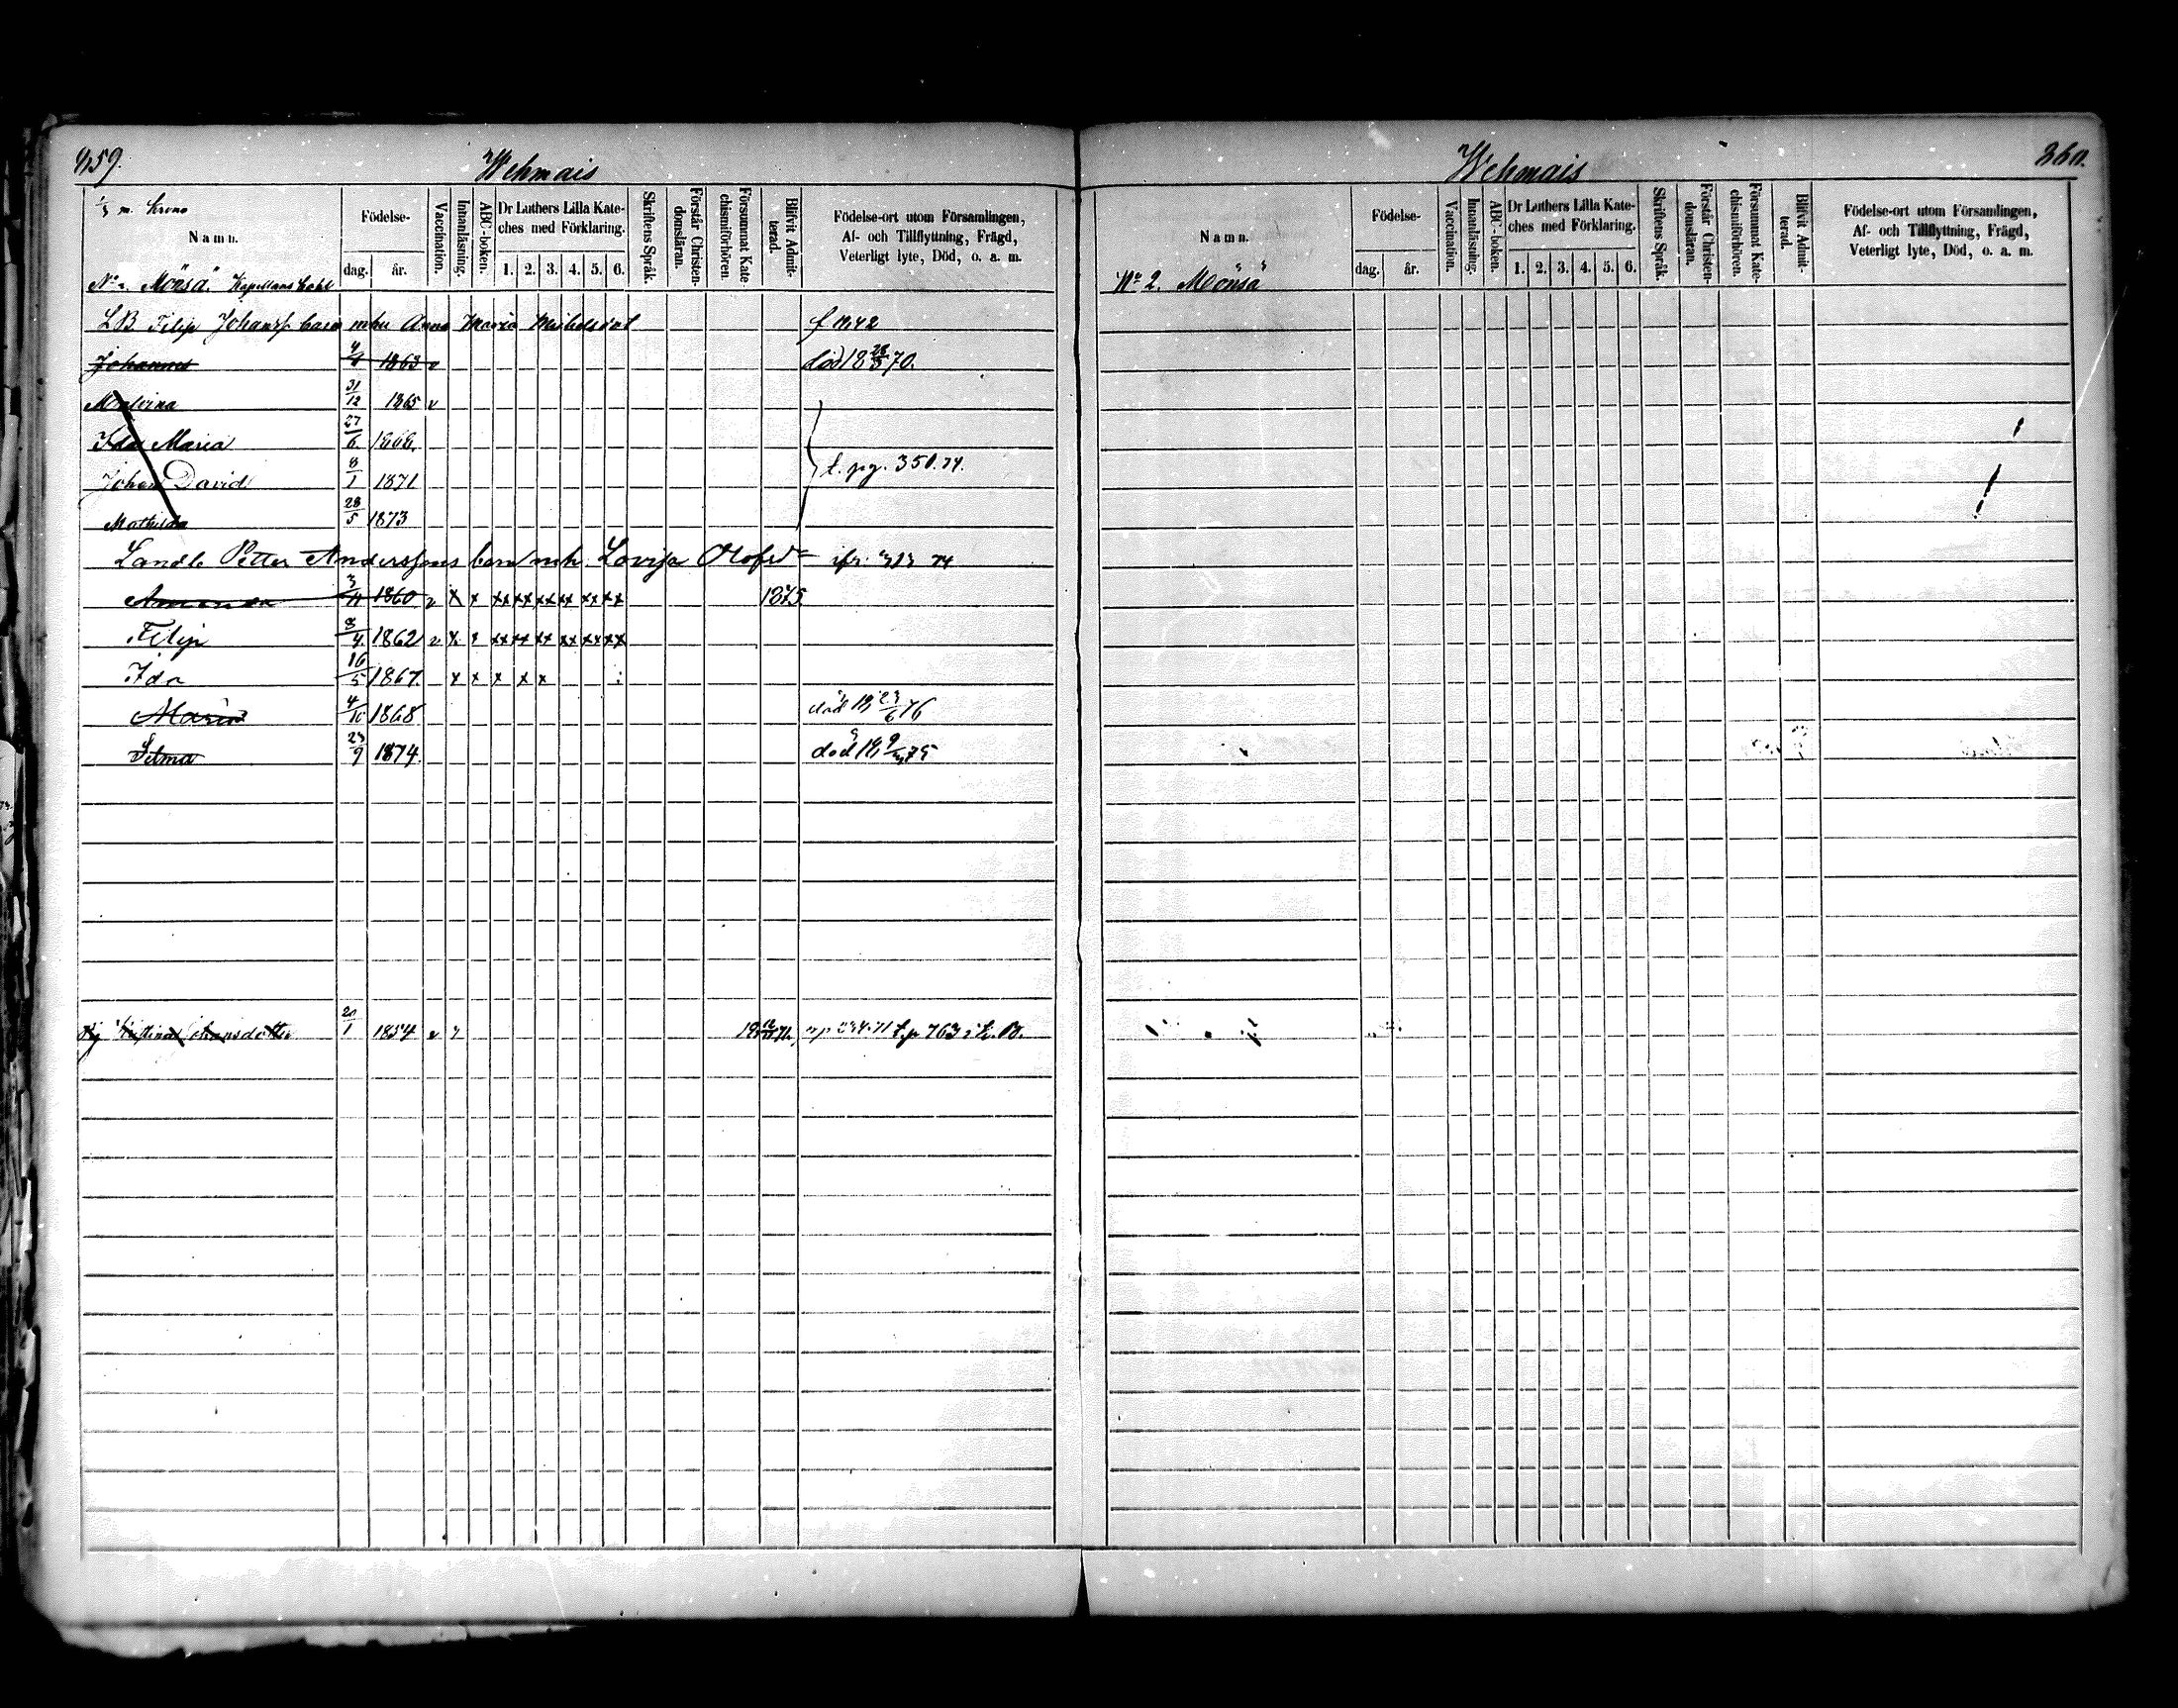 359.
Wehmais
1/3 m. Krono
Namn.
Födelse-
dag. år.
Vaccination.
Innanläsning.
ABC-boken.
Dr Luthers Lilla Kate-
ches med Förklaring.
1. 2. 3. 4. 5. 6.
Skriftens Språk.
Förstår Christen-
domsläran.
Försummat Kate
chismiförhören.
Blifvit Admit-
terad.
Födelse-ort utom Församlingen,
Af- och Tillflyttning, Frägd,
Veterligt lyte, Död, o. a. m.
No 2. Mönsä Kapellans
LB Filip Johanss barn mhu Anna Maria
Johannes 1863 v död 18 28/3 70.
Malvina 31/12 1865 v
Ida Maria 27/6 1868.
Johan David 8/1 1871 t. pg. 350.74.
Mathilda 28/5 1873
Landb Petter Anderssons barn mh. Lovisa Olofsd
Amanda 3 1860 v x x xx xx xx xx xx xx 1875
Filip 8/4 1862 v x x xx xx xx xx xx xx
Ida 16/5 1867 x x x x x
Maria 4/10 1868 död 18 6 76
Selma 23/9 1874. död 18 9 75
Pig Kristina Johansdotter 20/1 1854 t.p 763 i L.B.
Wehmais
360.
Namn.
Födelse-
dag. år.
Vaccination.
Innanläsning.
ABC-boken.
Dr Luthers Lilla Kate-
ches med Förklaring.
1. 2. 3. 4. 5. 6.
Skriftens Språk.
Förstår Christen-
domsläran.
Försummat Kate-
chismiförhören.
Blifvit Admit-
terad.
Födelse-ort utom Församlingen,
Af- och Tillflyttning, Frägd,
Veterligt lyte, Död, o. a. m.
No 2. Mönsä